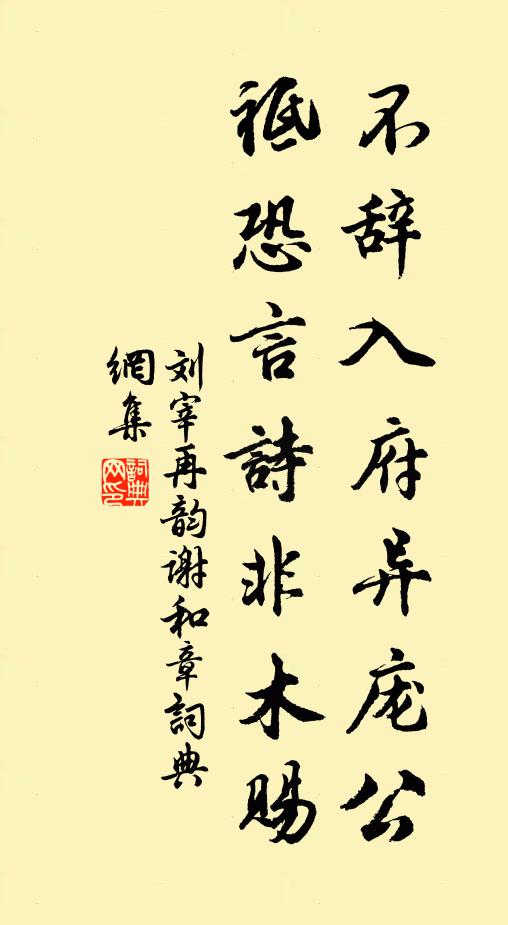 不辞入府异庞公
祗恐言詩非木赐
刘宰再韵谢和章詞典
網集
詞典网印